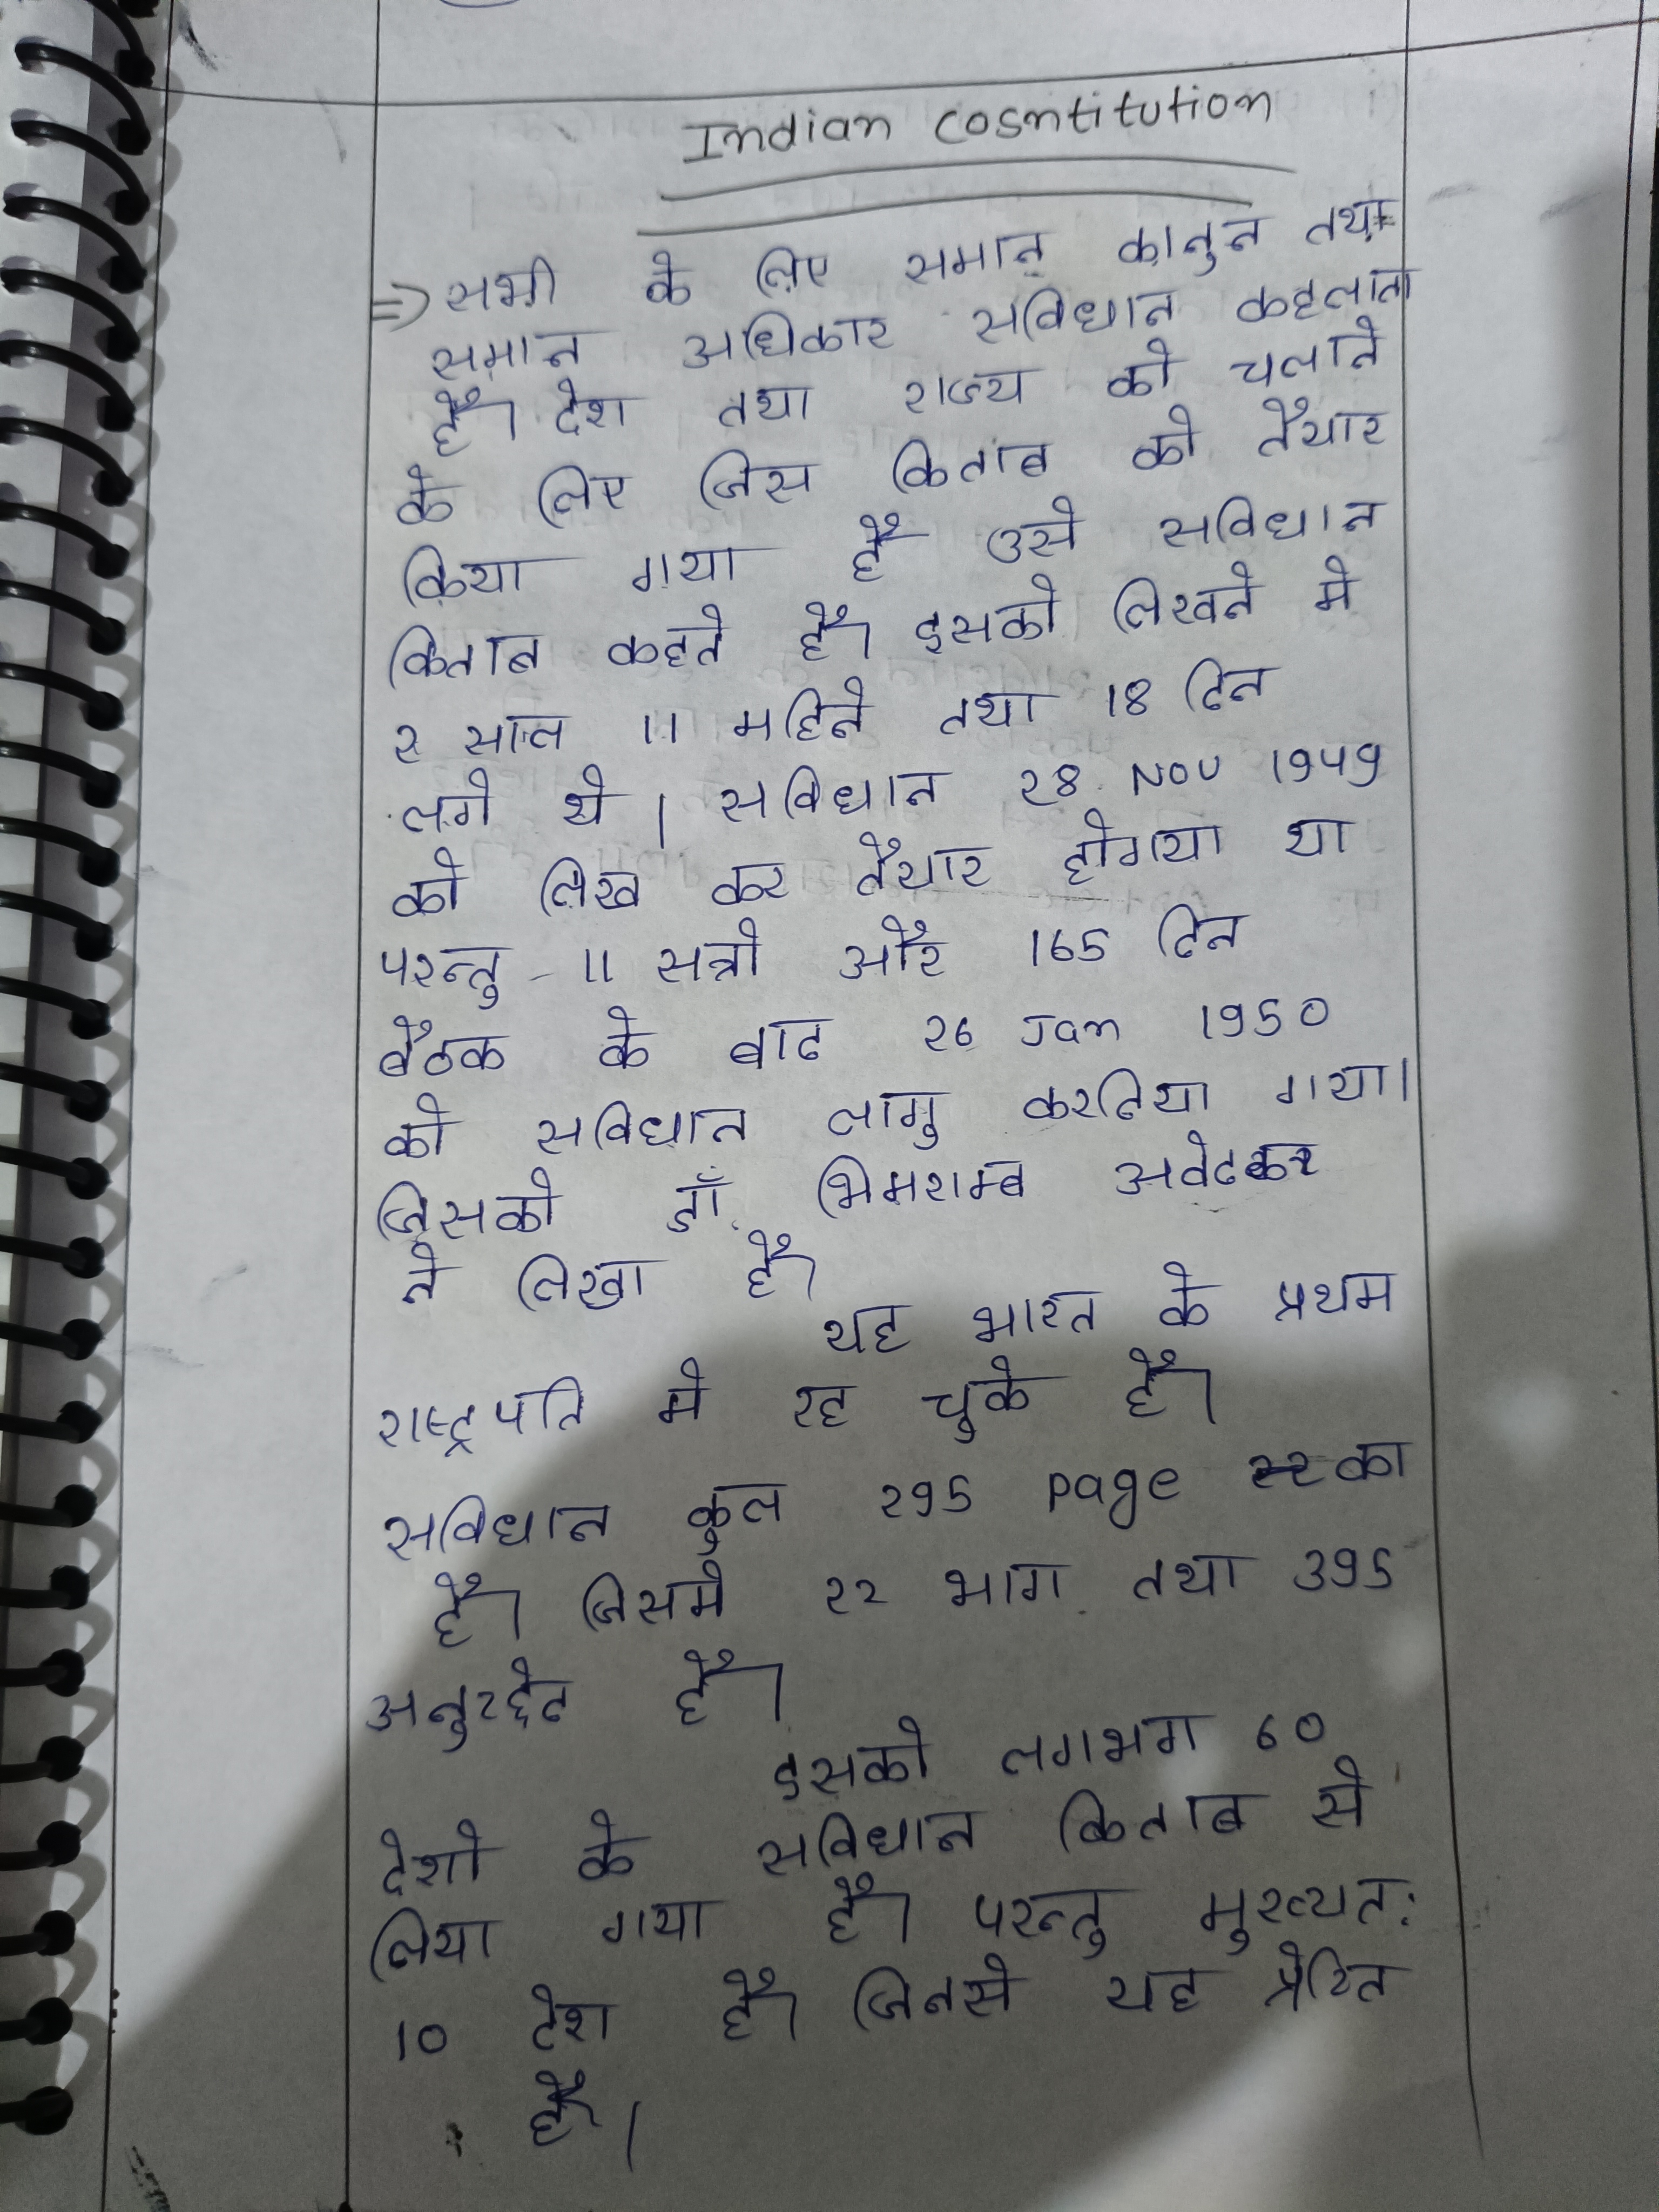 Indian Cosntitution
=> सभी के लिए समान कानुन तथा
समान अधिकार सविधान कहलाता
है। देश तथा राज्य को चलाने
के लिए जिस किताब को तैयार
किया गया है उसे सविधान
किताब कहते है। इसको लिखने मे
२ साल 11 महिने तथा 18 दिन
लगे थे । सविधान २8 Nov 1949
को लिख कर तैयार होगया था
परन्तु - 11 सत्रो और 165 दिन
बैठक के बाद २6 Jan 1950
को सविधान लागु करदिया गया।
जिसको डाँ. भिमराम्ब अवेदकर
ने लिखा है।
यह भारत के प्रथम
राष्ट्रपति मे रह चुके है।
सविधान कुल २95 page का
है। जिसमे २२ भाग तथा 395
अनुच्छेद है।
इसको लगभग 60
देशो के सविधान किताब से
लिया गया है। परन्तु मुख्यत:
10 देश है। जिनसे यह प्रेरित
है।